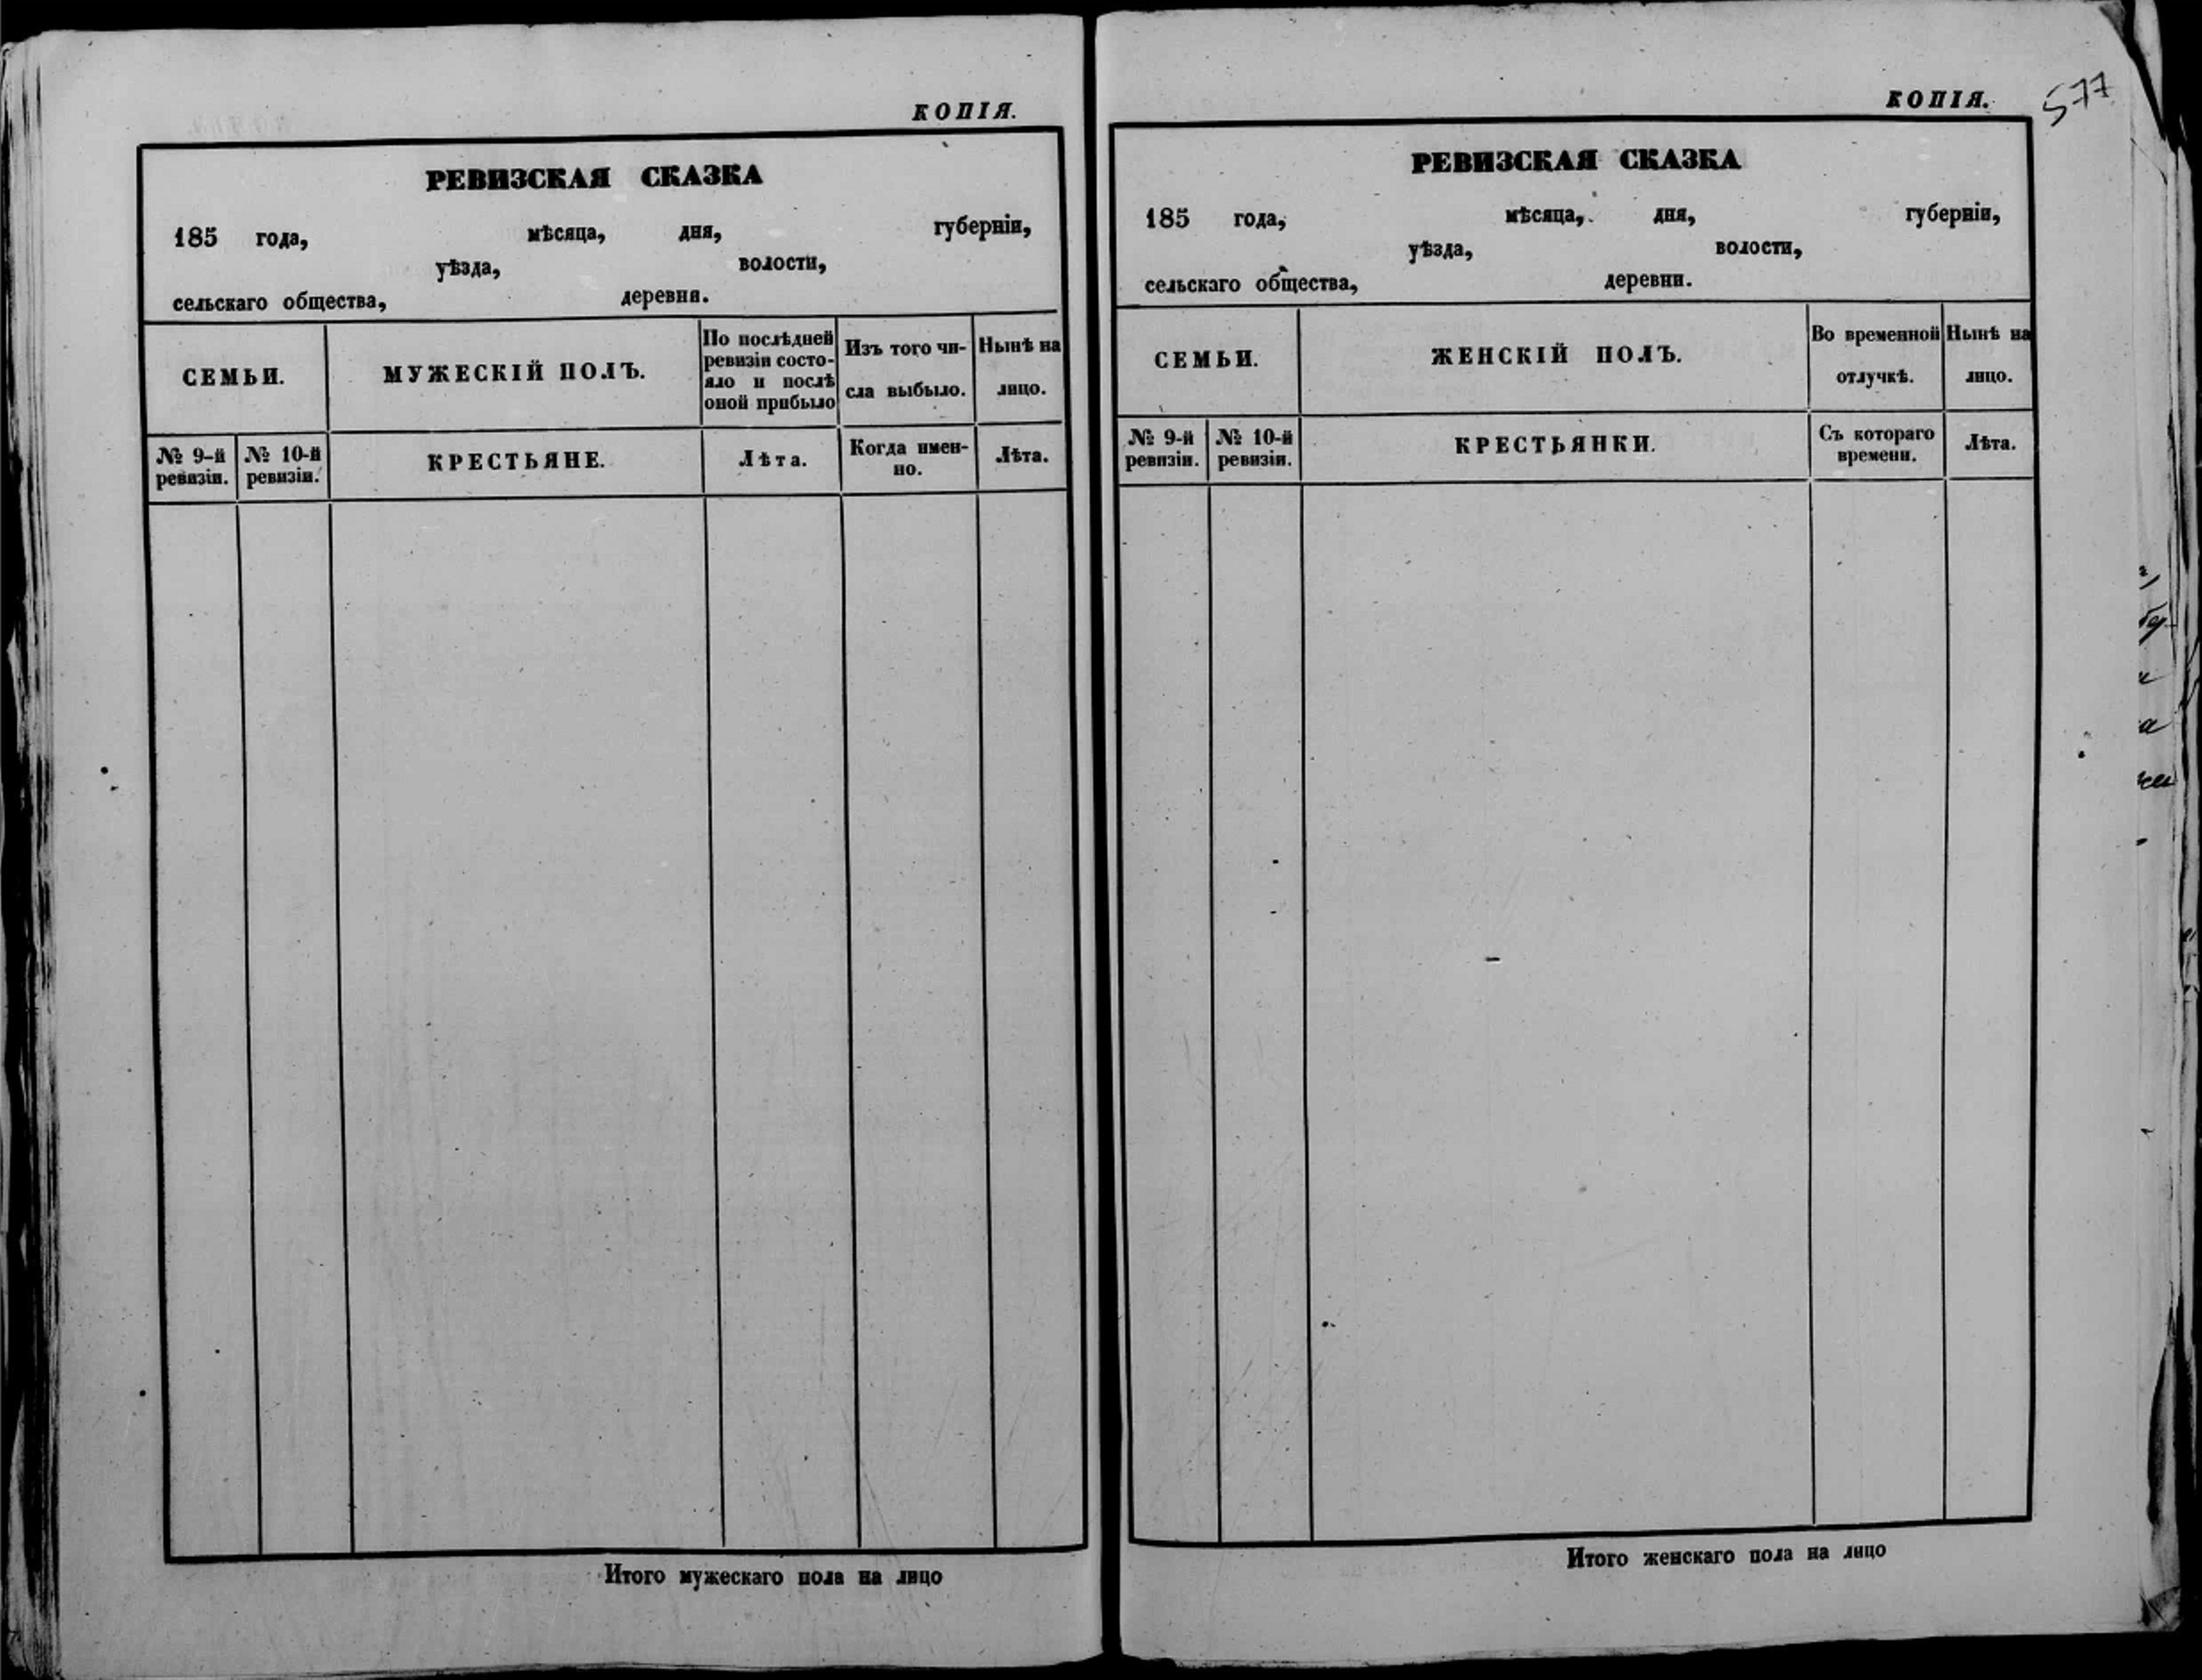 КОПІЯ.
РЕВИЗСКАЯ СКАЗКА
185 года, мѣсяца, дня, губерніи,
уѣзда, волости,
сельскаго общества, деревни.
СЕМЬИ.
МУЖЕСКІЙ ПОЛЪ.
По послѣдней
ревизіи состо-
яло и послѣ
оной прибыло
Изъ того чи-
сла выбыло.
Нынѣ на
лицо.
№ 9-й
ревизіи.
№ 10-й
ревизіи.
КРЕСТЬЯНЕ.
Лѣта.
Когда имен-
но.
Лѣта.
Итого мужескаго пола на лицо
КОПІЯ.
577
РЕВИЗСКАЯ СКАЗКА
185 года, мѣсяца, дня, губерніи,
уѣзда, волости,
сельскаго общества, деревни.
СЕМЬИ.
ЖЕНСКІЙ ПОЛЪ.
Во временной
отлучкѣ.
Нынѣ на
лицо.
№ 9-й
ревизіи.
№ 10-й
ревизіи.
КРЕСТЬЯНКИ.
Съ котораго
времени.
Лѣта.
Итого женскаго пола на лицо